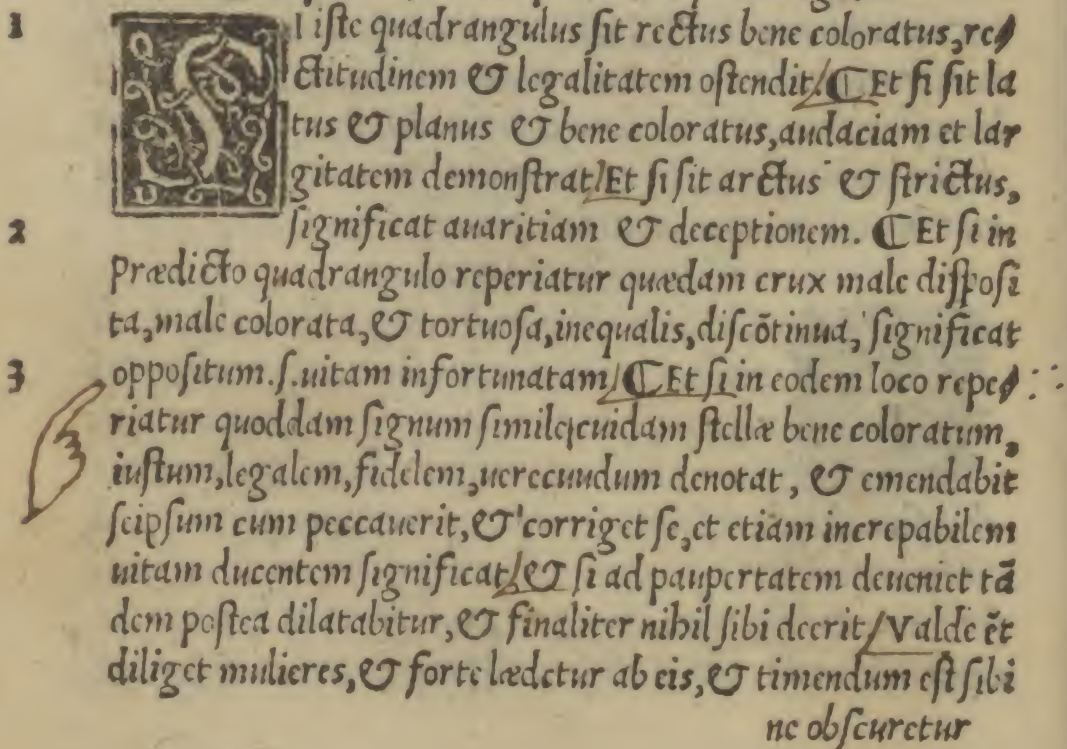 1 SI iſte quadrangulus ſit rectus bene coloratus, re⸗
ctitudinem & legalitatem oſtendit/ ¶ Et ſi ſit la
tus & planus & bene coloratus, audaciam et lar
gitatem demonſtrat/ Et ſi ſit arctus & ſtrictus,
2 ſignificat auaritiam & deceptionem. ¶ Et ſi in
Prædicto quadrangulo reperiatur quædam crux male diſpoſi
ta, male colorata, & tortuoſa, inequalis, diſcõtinua, ſignificat
3 oppoſitum .ſ. uitam infortunatam/ ¶ Et ſi in eodem loco repe⸗
riatur quoddam ſignum ſimile cuidam ſtellæ bene coloratum,
iuſtum, legalem, fidelem, uerecuudum denotat, & emendabit
ſeipſum cum peccauerit, & corriget ſe, et etiam increpabilem
uitam ducentem ſignificat/ & ſi ad paupertatem deueniet tã
dem poſtea dilatabitur, & finaliter nihil ſibi deerit/ Valde ẽt
diliget mulieres, & forte lædetur ab eis, & timendum eſt ſibi
ne obſcuretur